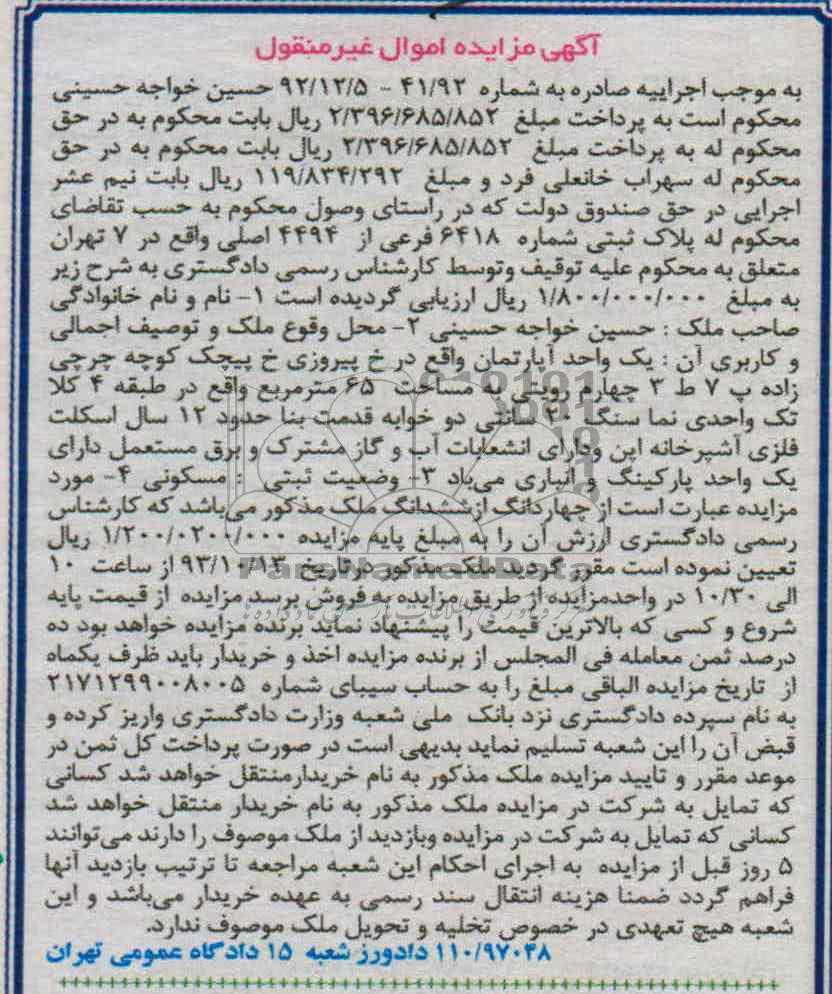 آگهی مزایده اموال غیرمنقول
به موجب اجراییه صادره به شماره ۴۱/۹۲ - ۹۲/۱۲/۵ حسین خواجه حسینی
محکوم است به پرداخت مبلغ ۲/۳۹۶/۶۸۵/۸۵۲ ریال بابت محکوم به در حق
محکوم له به پرداخت مبلغ ۲/۳۹۶/۶۸۵/۸۵۲ ریال بابت محکوم به در حق
محکوم له سهراب خانعلی فرد و مبلغ ۱۱۹/۸۳۴/۲۹۲ ریال بابت نیم عشر
اجرایی در حق صندوق دولت که در راستای وصول محکوم به حسب تقاضای
محکوم له پلاک ثبتی شماره ۶۴۱۸ فرعی از ۴۴۹۴ اصلی واقع در ۷ تهران
متعلق به محکوم علیه توقیف وتوسط کارشناس رسمی دادگستری به شرح زیر
به مبلغ ۱/۸۰۰/۰۰۰/۰۰۰ ریال ارزیابی گردیده است ۱- نام و نام خانوادگی
صاحب ملک : حسین خواجه حسینی ۲- محل وقوع ملک و توصیف اجمالی
و کاربری آن : یک واحد آپارتمان واقع در خ پیروزی خ پیچک کوچه چرچی
زاده پ ۷ ط ۳ چهارم رویتی به مساحت ۶۵ مترمربع واقع در طبقه ۴ کلا
تک واحدی نما سنگ ۲۰ سانتی دو خوابه قدمت بنا حدود ۱۲ سال اسکلت
فلزی آشپرخانه اپن ودارای انشعابات آب و گاز مشترک و برق مستعمل دارای
یک واحد پارکینگ و انباری می‌باد ۳- وضعیت ثبتی : مسکونی ۴- مورد
مزایده عبارت است از چهاردانگ ازششدانگ ملک مذکور می‌باشد که کارشناس
رسمی دادگستری ارزش آن را به مبلغ پایه مزایده ۱/۲۰۰/۰۲۰۰/۰۰۰ ریال
تعیین نموده است مقرر گردید ملک مذکور درتاریخ ۹۳/۱۰/۱۳ از ساعت ۱۰
الی ۱۰/۳۰ در واحدمزایده از طریق مزایده به فروش برسد مزایده از قیمت پایه
شروع و کسی که بالاترین قیمت را پیشنهاد نماید برنده مزایده خواهد بود ده
درصد ثمن معامله فی المجلس از برنده مزایده اخذ و خریدار باید ظرف یکماه
از تاریخ مزایده الباقی مبلغ را به حساب سیبای شماره ۲۱۷۱۲۹۹۰۰۸۰۰۵
به نام سپرده دادگستری نزد بانک ملی شعبه وزارت دادگستری واریز کرده و
قبض آن را این شعبه تسلیم نماید بدیهی است در صورت پرداخت کل ثمن در
موعد مقرر و تایید مزایده ملک مذکور به نام خریدارمنتقل خواهد شد کسانی
که تمایل به شرکت در مزایده ملک مذکور به نام خریدار منتقل خواهد شد
کسانی که تمایل به شرکت در مزایده وبازدید از ملک موصوف را دارند می‌توانند
۵ روز قبل از مزایده به اجرای احکام این شعبه مراجعه تا ترتیب بازدید آنها
فراهم گردد ضمنا هزینه انتقال سند رسمی به عهده خریدار می‌باشد و این
شعبه هیچ تعهدی در خصوص تخلیه و تحویل ملک موصوف ندارد.
۱۱۰/۹۷۰۴۸ دادورز شعبه ۱۵ دادگاه عمومی تهران
ParsNamadData